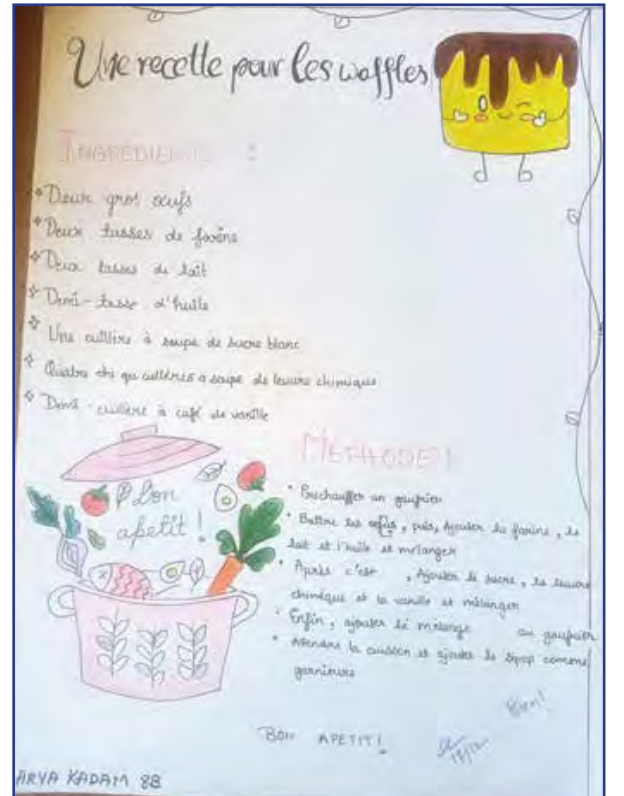 Une recette pour les waffles
INGRÉDIENTS :
Deux gros oeufs
Deux tasses de farine
Deux tasses de lait
Demi-tasse d'huile
Une cuillère à soupe de sucre blanc
Quatre à soupe de levure chimique
Demi-cuillère à café de vanille
Bon
apetit!
METHODE :
Préchauffer un gaufrier
Battre les , puis, Ajouter la farine, le
lait et l'huile et mélanger
Après c'est , Ajouter le sucre, la levure
chimique et la vanille et mélanger
Enfin, ajouter le mélange au gaufrier
Attendre la cuisson et ajouter le comme
garnitures
Bien!
BON APETIT!
ARYA KADAM 8B